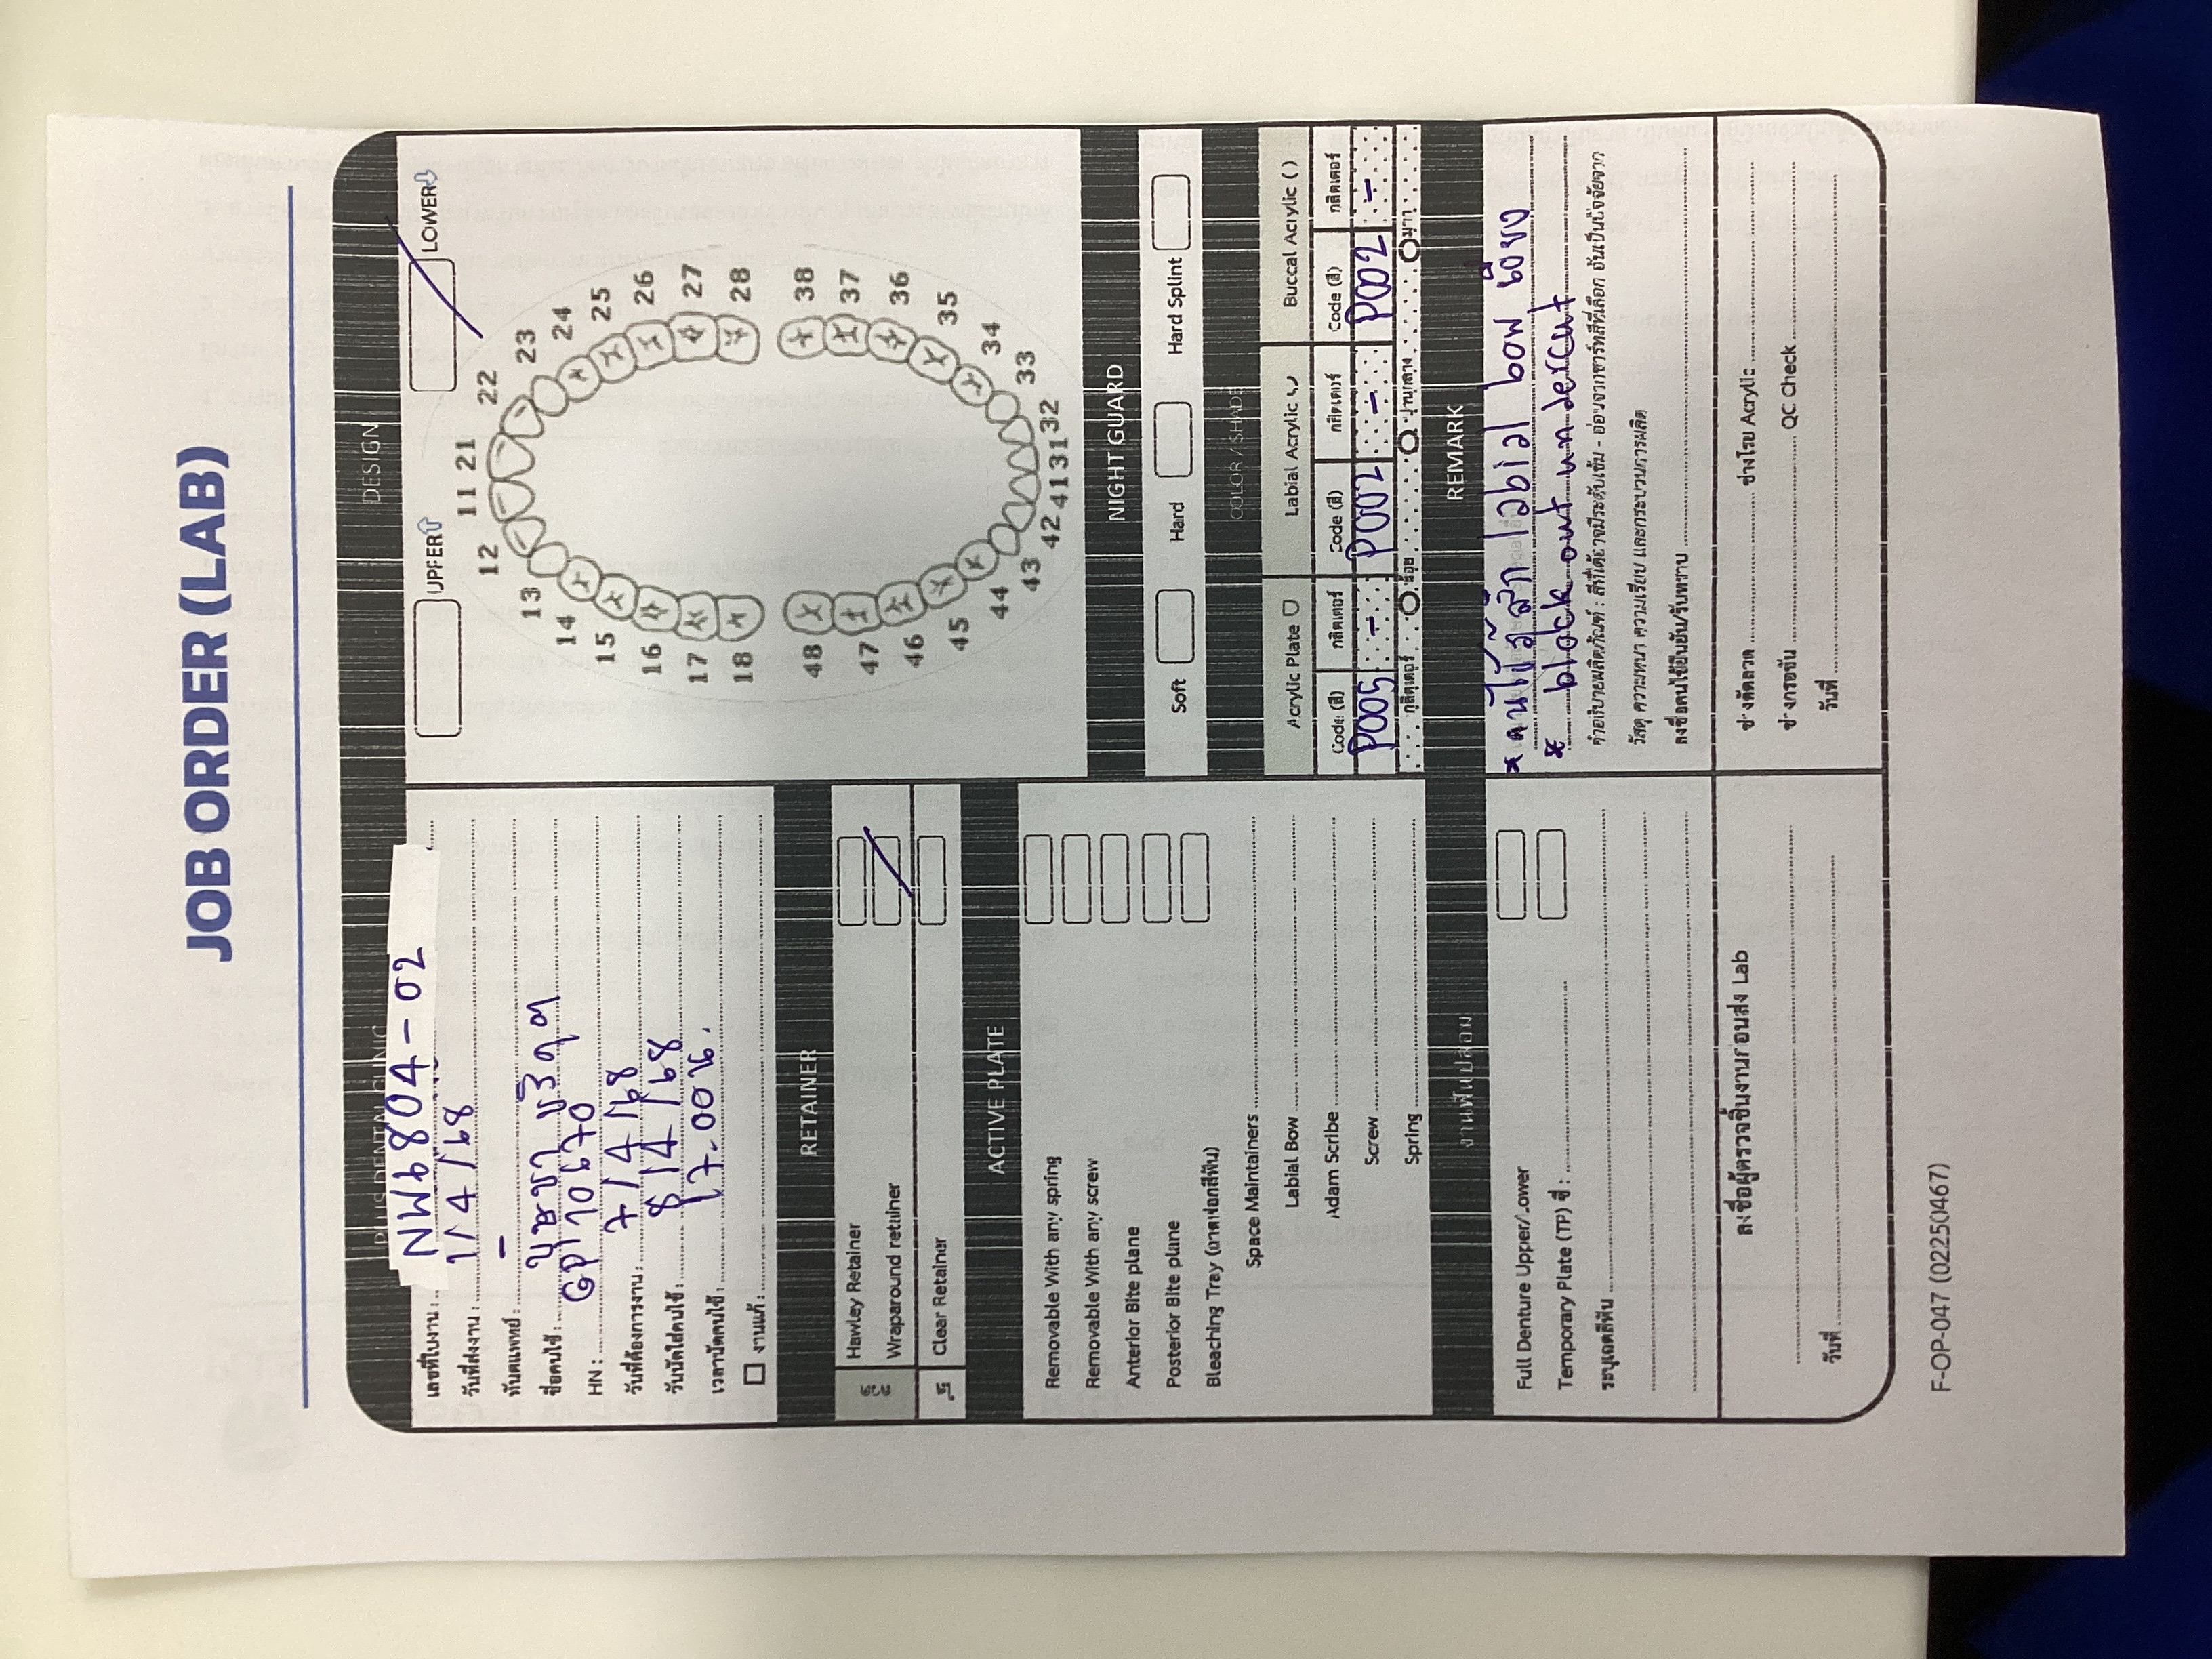 JOB ORDER (LAB)
PLUS DENTAL CLINIC
เลขที่ใบงาน : NW6804-02
วันที่ส่งงาน : 1/4/68
ทันตแพทย์ : -
ชื่อคนไข้ : บุษบา
HN : GP 10670
วันที่ต้องการงาน : 7/4/68
วันนัดใส่คนไข้ : 8/4/68
เวลานัดคนไข้ : 17.00น.
งานแก้ :
RETAINER
ลวด
Hawley Retainer
Wraparound retainer
ใส
Clear Retainer
ACTIVE PLATE
Removable With any spring
Removable With any screw
Anterior Bite plane
Posterior Bite plane
Bleaching Tray (ถาดฟอกสีฟัน)
Space Maintainers
Labial Bow
Adam Scribe
Screw
Spring
งานฟันปลอม
Full Denture Upper/Lower
Temporary Plate (TP) ซี่ :
ระบุเฉดสีฟัน
ลงชื่อผู้ตรวจชิ้นงานก่อนส่ง Lab
วันที่
DESIGN
UPPER LOWER
11 21
12 22
13 23
14 24
15 25
16 26
17 27
18 28
48 38
47 37
46 36
45 35
44 34
43 33
42 41 31 32
NIGHT GUARD
Soft Hard Hard Splint
COLOR / SHADE
Acrylic Plate Labial Acrylic Buccal Acrylic ( )
Code (สี) กลิตเตอร์ Code (สี) กลิตเตอร์ Code (สี) กลิตเตอร์
P005 - P002 - P002 -
กลิตเตอร์ น้อย ปานกลาง มาก
REMARK
* คนไข้รู้สึก labial bow เอียง
* block out undercut
คำอธิบายผลิตภัณฑ์ : สีที่ได้อาจมีระดับเข้ม - อ่อนจากชาร์ทสีที่เลือก อันเป็นปัจจัยจาก
วัสดุ ความหนา ความเรียบ และกระบวนการผลิต
ลงชื่อคนไข้ยืนยัน/รับทราบ
ช่างดัดลวด ช่างโรย Acrylic
ช่างกรอขัน QC Check
วันที่
F-OP-047 (02250467)